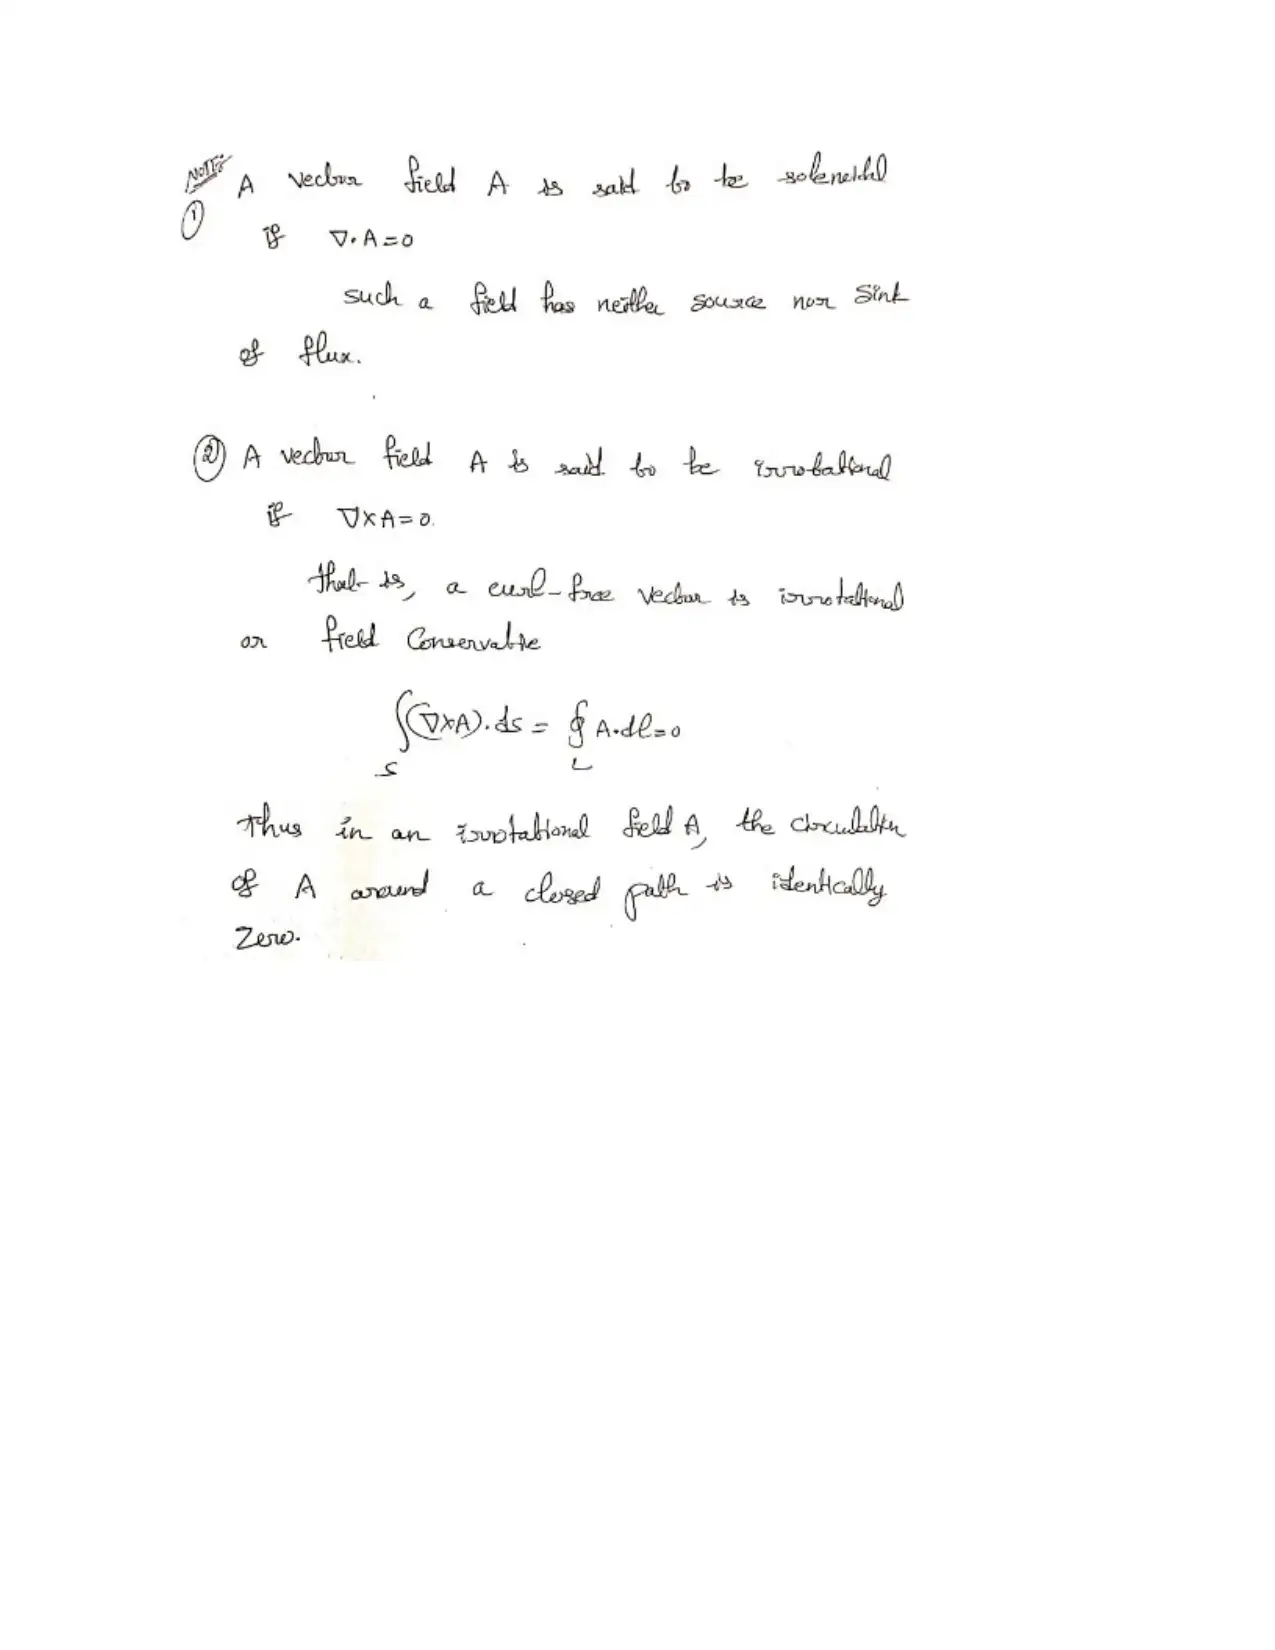 NOTE:
① A vector field A is said to be solenoidal
if ∇·A=0
such a field has neither source nor sink
of flux.
② A vector field A is said to be irrotational
if ∇×A=0.
that is, a curl-free vector is irrotational
or field conservative
∫(∇×A).ds = ∮ A·dl=0
S L
Thus in an irrotational field A, the circulation
of A around a closed path is identically
Zero.